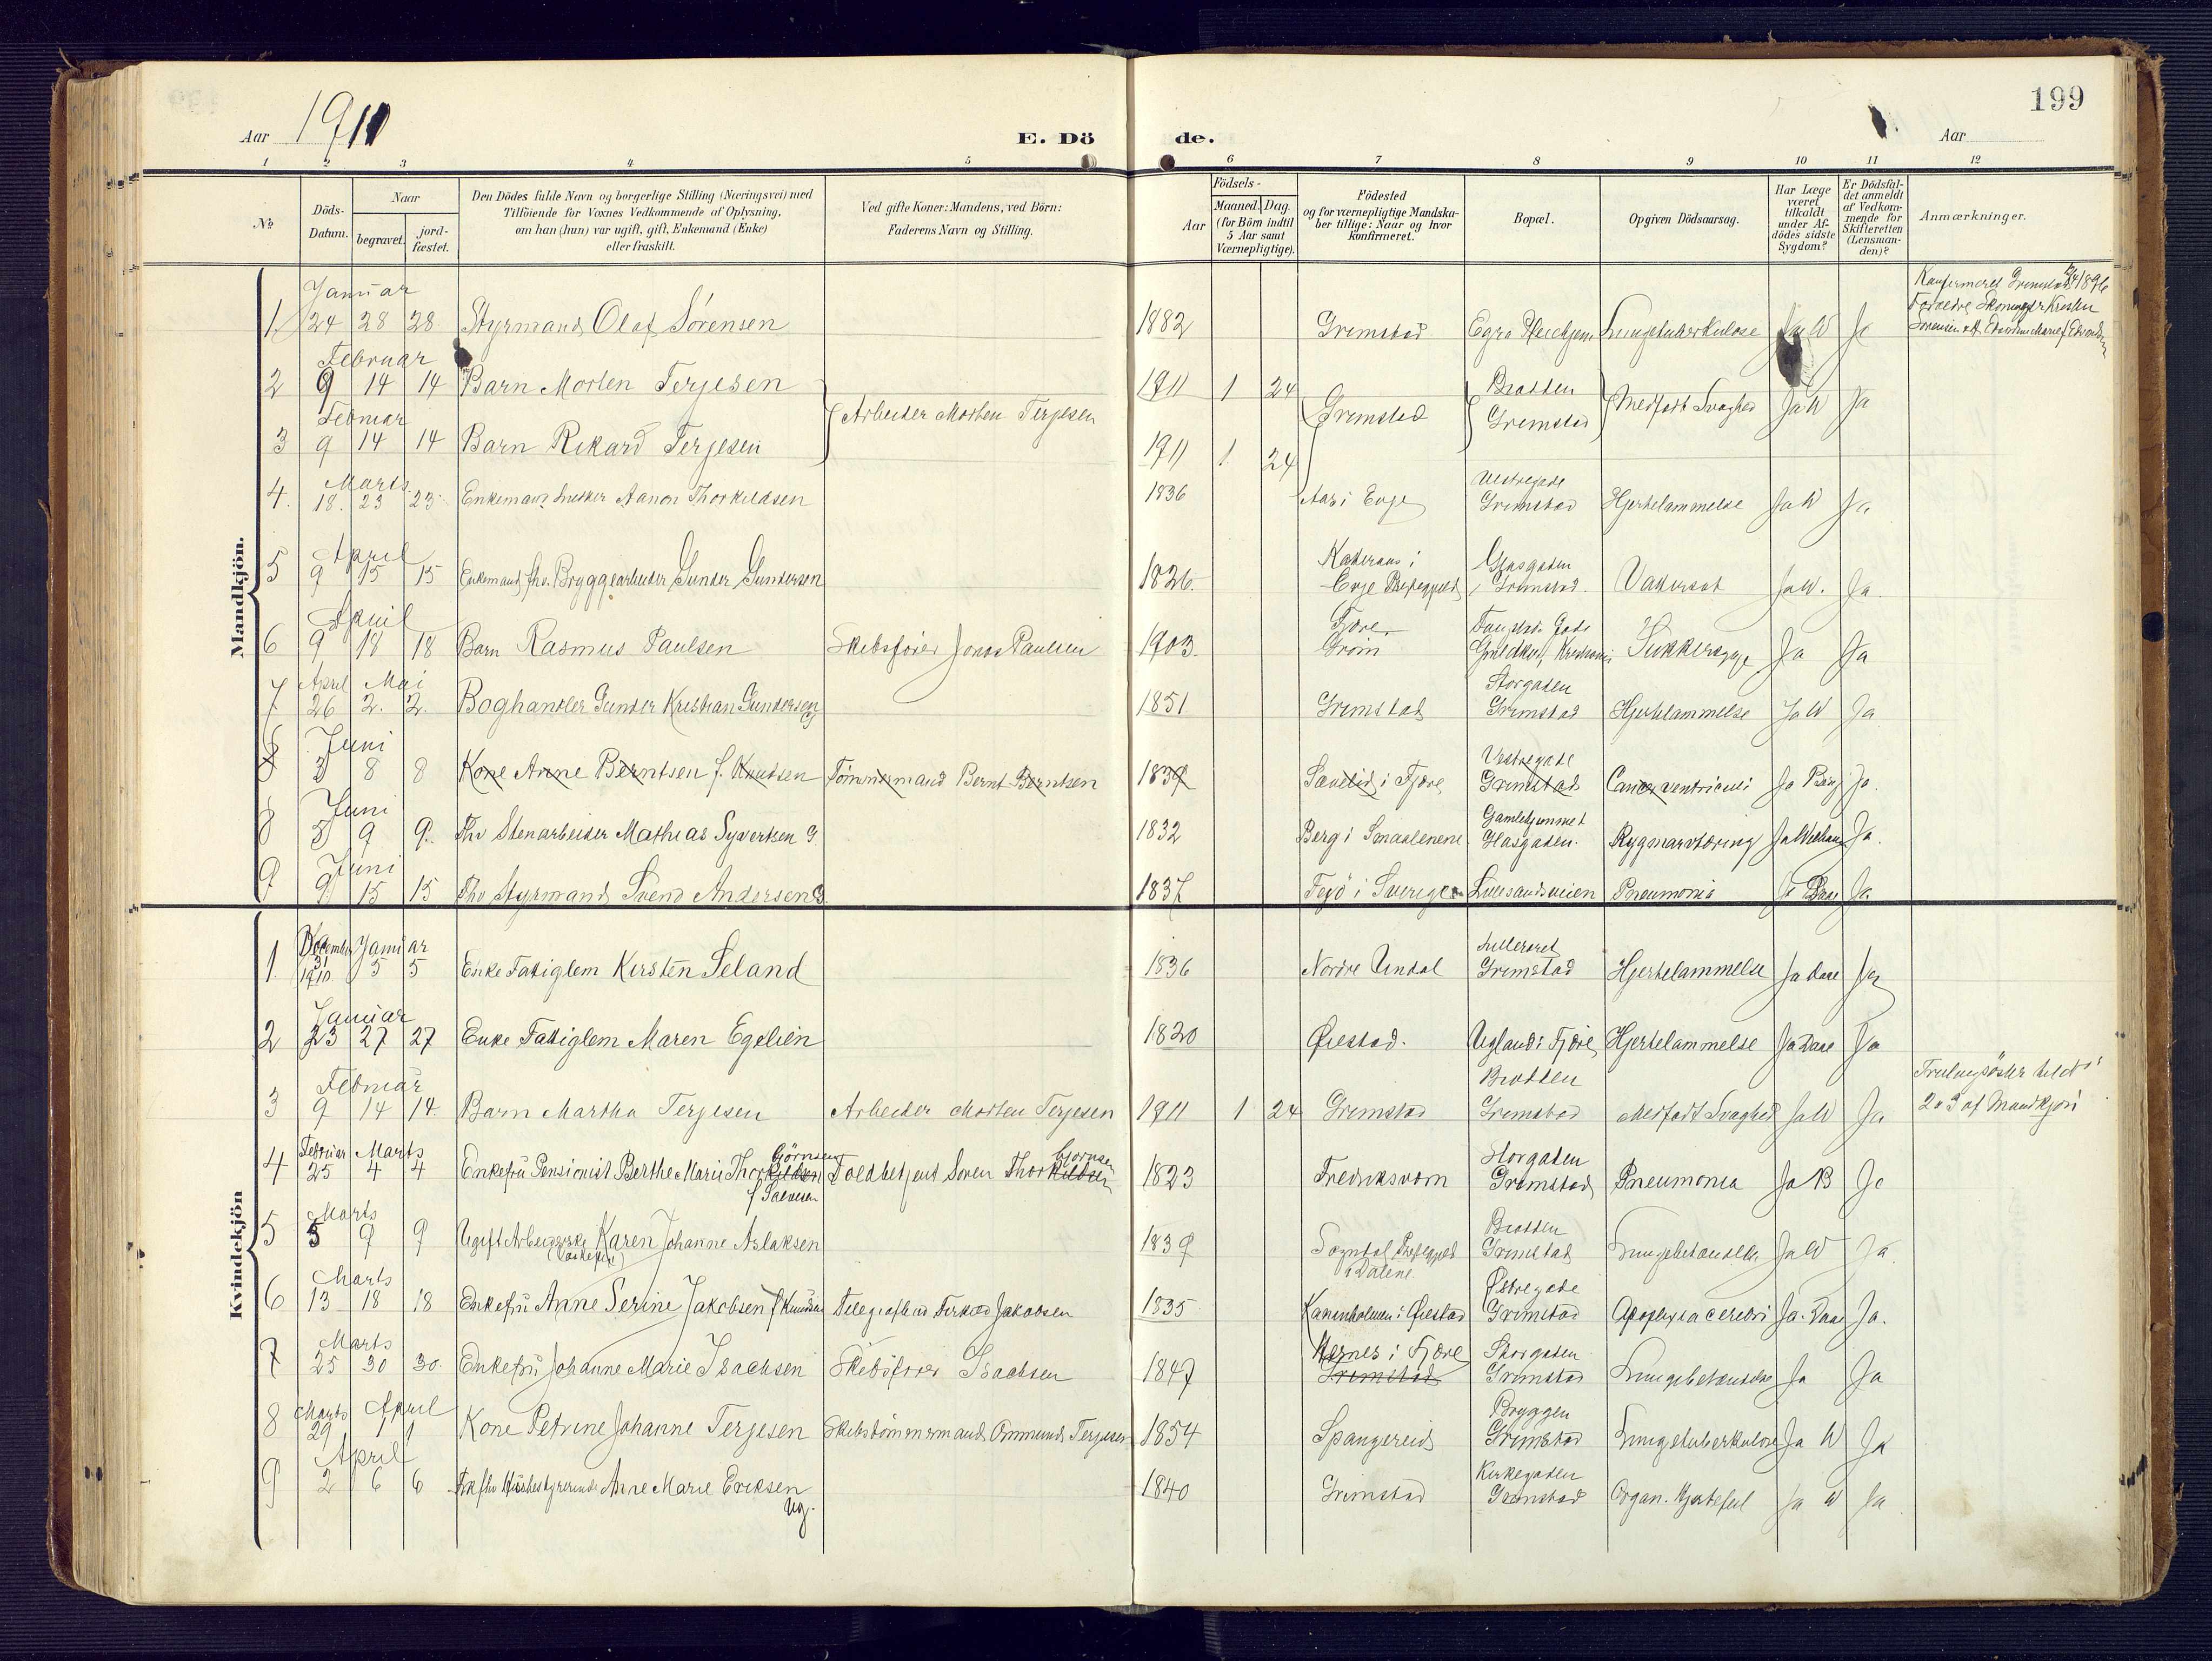 199
Aar 1911
E. Dö
de.
Aar
1 2 3 4 5 6 7 8 9 10 11 12
No
Döds-Datum.
Naar
begravet.
jord-fæstet.
Den Dödes fulde Navn og borgerlige Stilling (Næringsvei) med
Tilföiende for Voxnes Vedkommende af Oplysning,
om han (hun) var ugift, gift, Enkemand (Enke)
eller fraskilt.
Ved gifte Koner: Mandens, ved Börn:
Faderens Navn og Stilling.
Födsels-
Aar
Maaned. Dag.
(for Börn indtil
5 Aar samt
Værnepligtige).
Födested
og for værnepligtige Mandska-
ber tillige: Naar og hvor
konfirmeret.
Bopæl.
Opgiven Dödsaarsag.
Har Læge
været
tilkaldt
under Af-
dödes sidste
Sygdom?
Er Dödsfal-
det anmeldt
af Vedkom-
mende for
Skifteretten
(Lensman-
den)?
Anmærkninger.
Mandkjön.
Januar
1. 24 28 28 Styrmand Olaf Sörensen 1882 Grimstad Lungetuberkulose Ja W Ja
Konfirmeret Grimstad 1896
Februar
2 9 14 14 Barn Morten Terjesen 1911 1 24 Bratten
Arbeider Morten Terjesen Grimstad Grimstad Medfødt Svaghed Ja W Ja
Februar
3 9 14 14 Barn Rikard Terjesen 1911 1 24
Marts Vestregade
4. 18. 23 23 Enkemand Snekker Aanon Thorkildsen 1836 Aas i Evje Grimstad Hjertelammelse Ja W Ja
April
5 9 15 15 Enkemand fhv. Bryggearbeider Gunder Gundersen 1826. Evje Grimstad. Vattersot Ja W. Ja.
April Fjære
6 9 18 18 Barn Rasmus Paulsen Skibsfører Jonas Paulsen 1903. Sukkersyge Ja Ja
April Mai Storgaden
7 26 2. 2. Boghandler Gunder Kristian Gundersen G 1851 Grimstad Grimstad Hjertelammelse Ja W Ja
Juni Vestregade
8 3 8 8 Kone Anne Berntsen f. Knudsen Tömmermand Bernt Berntsen 1839 i Fjære Grimstad Cancer ventriculi Ja Ja.
Juni Gamlehjemmet
8 5 9 9. Fhv Stenarbeider Mathias Syvertsen G. 1832 Berg i Smaalenene Ja.
Juni
9 9 15 15 Fhv Styrmand Svend Andersen G. 1837 i Sverige Lillesandsveien Pneumonia Ja Ja.
Kvindekjön
December Januar
1 31 1910 5 5 Enke Fattiglem Kirsten Seland 1836 Nordre Undal Grimstad Hjertelammelse Ja Daae Ja
Januar
2 23 27 27 Enke Fattiglem Maren Egelien 1820 Øiestad. Ugland i Fjære Hjertelammelse Ja Daae Ja
Februar Bratten
3 9 14 14. Barn Martha Terjesen Arbeider Morten Terjesen 1911 1 24 Grimstad Grimstad Medfødt Svaghed Ja W Ja
2 og 3 af Mandkjøn
Februar Marts Björnsen Björnsen Storgaden
4 25 4 4 Enkefru Pensionist Berthe Marie Thorkildsen Toldbetjent Søren Thorkildsen 1823 Fredriksværn Grimstad Pneumonia Ja B Ja
Marts Bratten
5 5 9 9 Ugift Arbeiderske Karen Johanne Aslaksen 1839 Grimstad Lungebetændelse Ja W Ja
i Dalene.
Marts Østregade
6 13 18 18 Enkefru Anne Serine Jakobsen f Knudsen Jakobsen 1835 i Øiestad Grimstad Apoplexia cerebri Ja. Daae Ja.
Marts i Fjære Storgaden
7 25 30 30. Enkefru Johanne Marie Isachsen Skibsfører Isachsen 1847 Grimstad Grimstad Lungebetændelse Ja Ja
Marts April Bryggen
8 29 1 1 Kone Petrine Johanne Terjesen Skibstömmermand Ommund Terjesen 1854 Spangereid Grimstad Lungetuberkulose Ja W Ja
April Kirkegaden
9 2 6 6 Anne Marie Eriksen 1840 Grimstad Grimstad Organ. Hjertefeil Ja W Ja
ug.